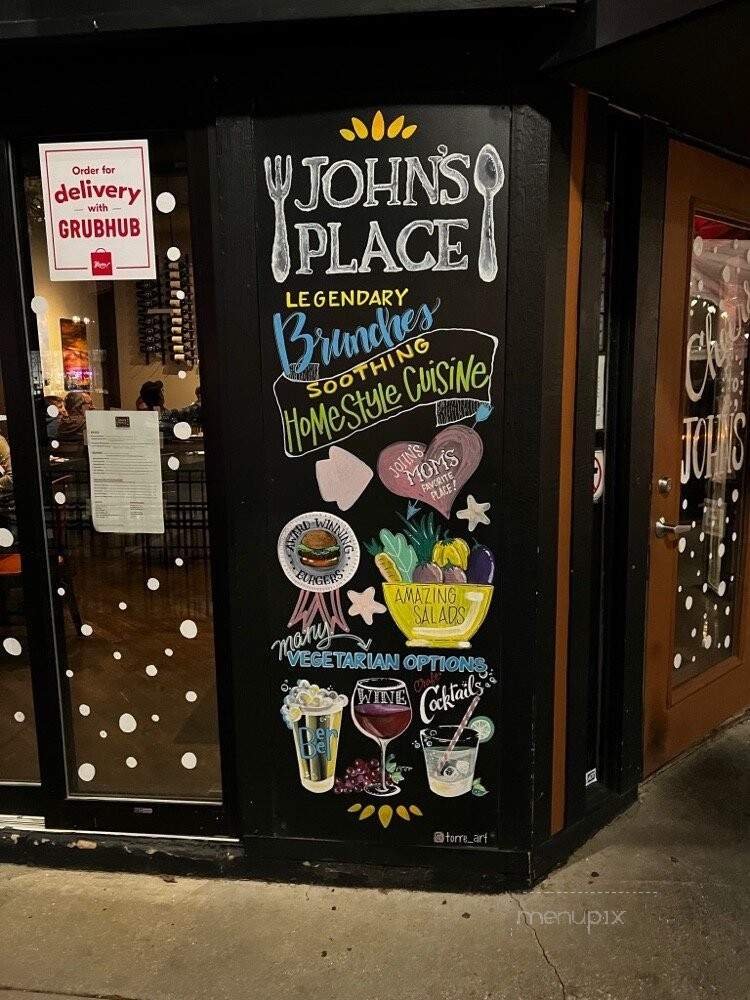 Order for
delivery
with
GRUBHUB
JOHN'S
PLACE
LEGENDARY
Brunches
SOOTHING
HOMESTYLE CUISINE
JOHN'S
MOM'S
FAVORITE
PLACE!
AWARD WINNING
BURGERS
AMAZING
SALADS
many
VEGETARIAN OPTIONS
BEER
BEER
WINE
Craft
Cocktails
torre_art
JOHN'S
menupix